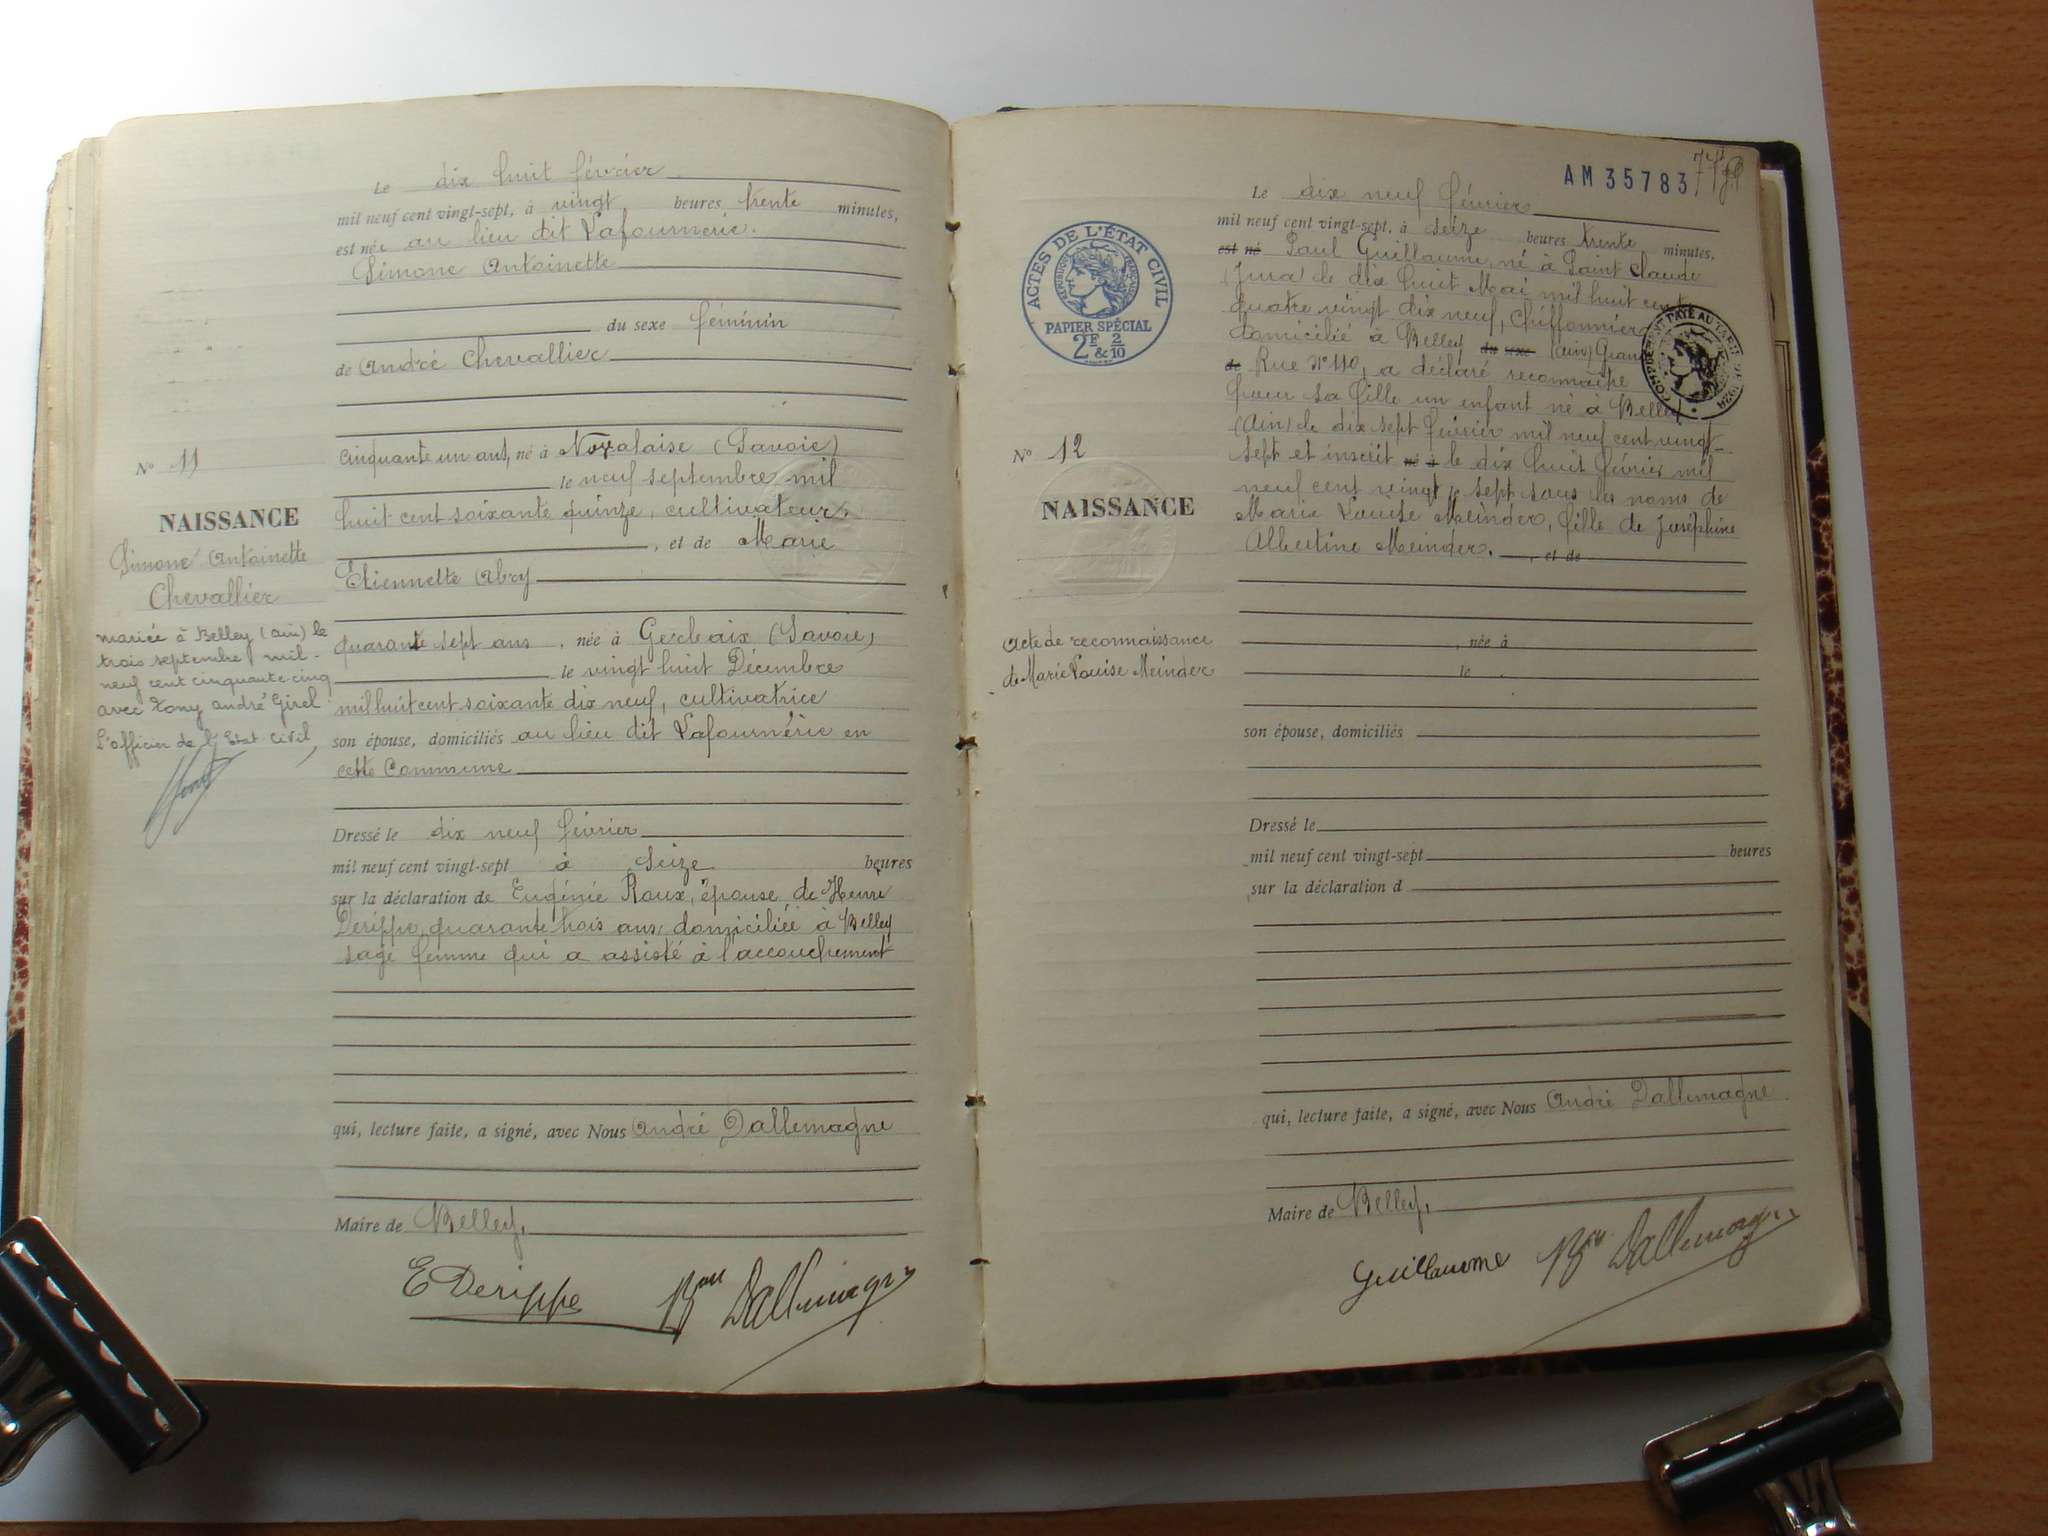 Le dix huit février
mil neuf cent vingt-sept, à vingt heures trente minutes,
est née au lieu dit Lafournerie.
Simone Antoinette
du sexe féminin
de André Chevallier
cinquante un ans, né à Novalaise (Savoie)
le neuf septembre mil
huit cent soixante quinze, cultivateur,
, et de Marie
Etiennette Abry
quarante sept ans, née à Gerbaix (Savoie)
le vingt huit Décembre
mil huit cent soixante dix neuf, cultivatrice
son épouse, domiciliés au lieu dit Lafournérie en
cette Commune
Dressé le dix neuf février
mil neuf cent vingt-sept à seize heures
sur la déclaration de Eugénie Roux, épouse de Henri
Derippe, quarante trois ans, domiciliée à Belley
sage femme qui a assisté à l'accouchement
qui, lecture faite, a signé, avec Nous André Dallemagne
Maire de Belley.
E Derippe Bon Dallemagne
N° 11
NAISSANCE
Simone Antoinette
Chevallier
mariée à Belley (ain) le
trois septembre mil-
neuf cent cinquante-cinq
avec Tony andré Girel
L'officier de l'Etat Civil,
AM 35783
Le dix neuf février
mil neuf cent vingt-sept, à seize heures trente minutes,
est né Paul Guillaume, né à Saint Claude
(Jura) le dix huit Mai mil huit cent
quatre vingt dix neuf, chiffonnier
domicilié à Belley du sexe (Ain) Grande
de Rue N° 110, a déclaré reconnaitre
pour sa fille un enfant né à Belley
(Ain) le dix sept février mil neuf cent vingt-
sept et inscrit né à le dix huit février mil
neuf cent vingt sept sous les noms de
Marie Louise Meinder, fille de Joséphine
Albertine Meinder. , et de
, née à
le
son épouse, domiciliés
Dressé le
mil neuf cent vingt-sept heures
sur la déclaration d
qui, lecture faite, a signé, avec Nous André Dallemagne
Maire de Belley.
Guillaume Bon Dallemagne
ACTES DE L'ÉTAT CIVIL
RÉPUBLIQUE FRANÇAISE
PAPIER SPÉCIAL
2F & 2/10
N° 12
NAISSANCE
Acte de reconnaissance
de Marie Louise Meinder